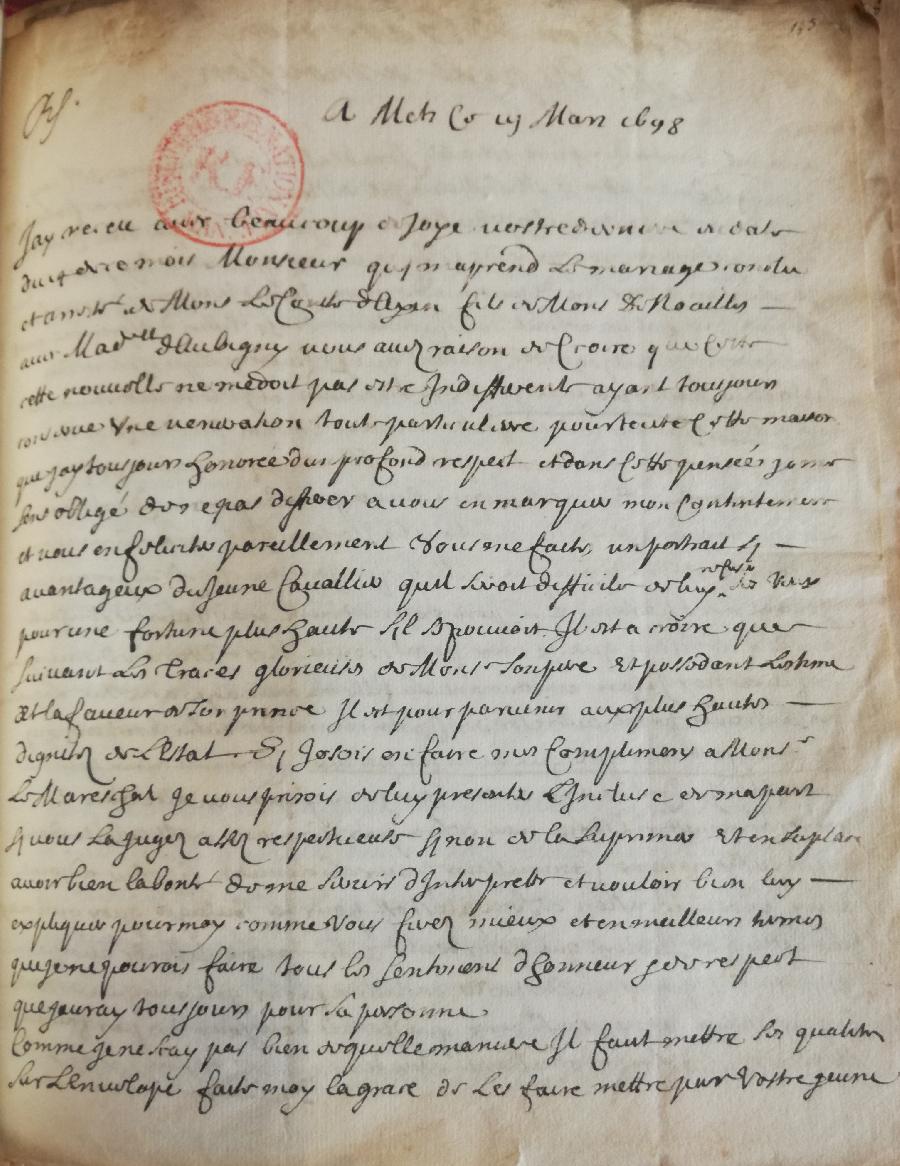 145
A Metz Ce 19 Mars 1698
Jay receu avec beaucoup de Joye vostre derniere en date
du 14 de ce mois Monsieur qui m aprend Le mariage conclu
et arresté de Mons Le Comte dAyen fils de Mons De Noailles
avec Madlle dAubigny vous avez raison de Croire que Cette
cette nouvelle ne me doit pas estre Indifferente ayant tousjours
conservé Une veneration toute particuliere pour toute Cette maison
que jay tousjours honorée dun profond respect et dans Cette pensée je me
sens obligé de ne pas differer a vous en marquer mon Contentement
et vous en feliciter pareillement Vous me faite un portrait sy
avantageux du Jeune Cavallier quil seroit difficile de luy refuser des Vœux
pour une fortune plus haute sil se pouvoit. Il est a croire que
suivant Les traces glorieuses de Monsr son pere Et possedant Lestime
Et la faveur de son prince Il est pour parvenir aux plus hautes
dignitez de LEstat Sy Josois en faire mes Complimens a Monsr
Le Mareschal Je vous prirois de luy presenter LIncluse de ma part
sy vous La jugez assez respectueuse sy non de la suprimer Et en sa place
avoir bien la bonté de me servir dInterprette et vouloir bien luy
expliquer pour moy comme Vous ferez mieux et en meilleurs termes
que je ne pourois faire tous les sentimens dhonneur et de respect
que jauray tousjours pour sa personne
Comme je ne scay pas bien de quelle maniere Il faut mettre ses qualites
sur Lenvelope faite moy la grace de Les faire mettre par Vostre jeune